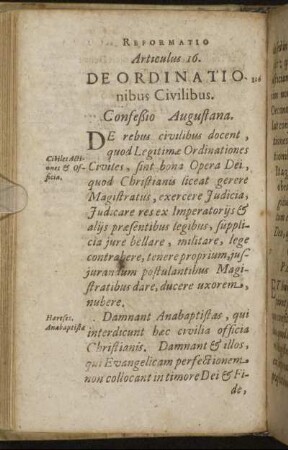 REFORMATIO
Articulus 16.
DE ORDINATIO-
nibus Civilibus.
Confeßio Augustana.
DE rebus civilibus docent,
quod Legitimæ Ordinationes
Civiles Acti-
ones & Of-
ficia.
Civiles, sint bona Opera Dei,
quod Christianis liceat gerere
Magistratus, exercere Judicia,
Judicare res ex Imperatorijs &
alijs præsentibus legibus, suppli-
cia jure bellare, militare, lege
contrahere, tenere proprium, jus-
jurandum postulantibus Magi-
stratibus dare, ducere uxorem,
nubere.
Hæreses.
Anabaptistæ
Damnant Anabaptistas, qui
interdicunt hæc civilia officia
Christianis. Damnant & illos,
qui Evangelicam perfectionem
non collocant in timore Dei & Fi-
de,